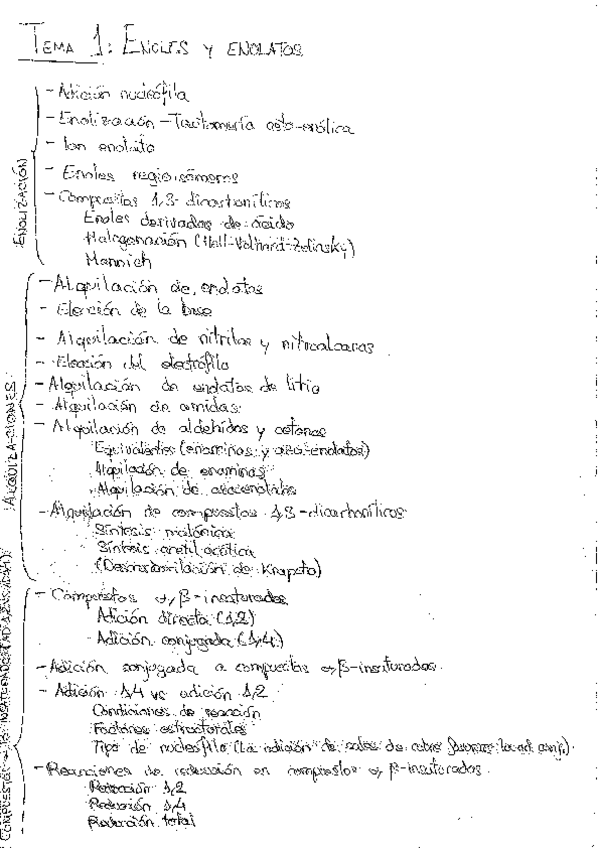 TEMA 1: ENOLES Y ENOLATOS
ENOLIZACIÓN
- Adición nucleófila
- Enolización - Tautomería ceto-enólica
- Ion enolato
- Enoles regioisómeros
- Compuestos 1,3-dicarbonílicos
Enoles derivados de ácido
Halogenación (Hell-Volhard-Zelinsky)
Mannich
ALQUILACIONES
- Alquilación de enolatos
- Elección de la base
- Alquilación de nitrilos y nitroalcanos
- Elección del electrófilo
- Alquilación de enolatos de litio
- Alquilación de amidas
- Alquilación de aldehidos y cetonas
Equivalentes (enaminas y aza-enolatos)
Alquilación de enaminas
Alquilación de azaenolatos
- Alquilación de compuestos 1,3-dicarbonílicos
Síntesis malónica
Síntesis acetilacética
(Descarboxilación de Krapcho)
COMPUESTOS α,β-INSATURADOS
- Compuestos α,β-insaturados
Adición directa (1,2)
Adición conjugada (1,4)
- Adición conjugada a compuestos α,β-insaturados
- Adición 1,4 vs adición 1,2
Condiciones de reacción
Factores estructurales
Tipo de nucleófilo (La adición de sales de cobre favorece la ad. conj.)
- Reacciones de reducción en compuestos α,β-insaturados
Reducción 1,2
Reducción 1,4
Reducción total